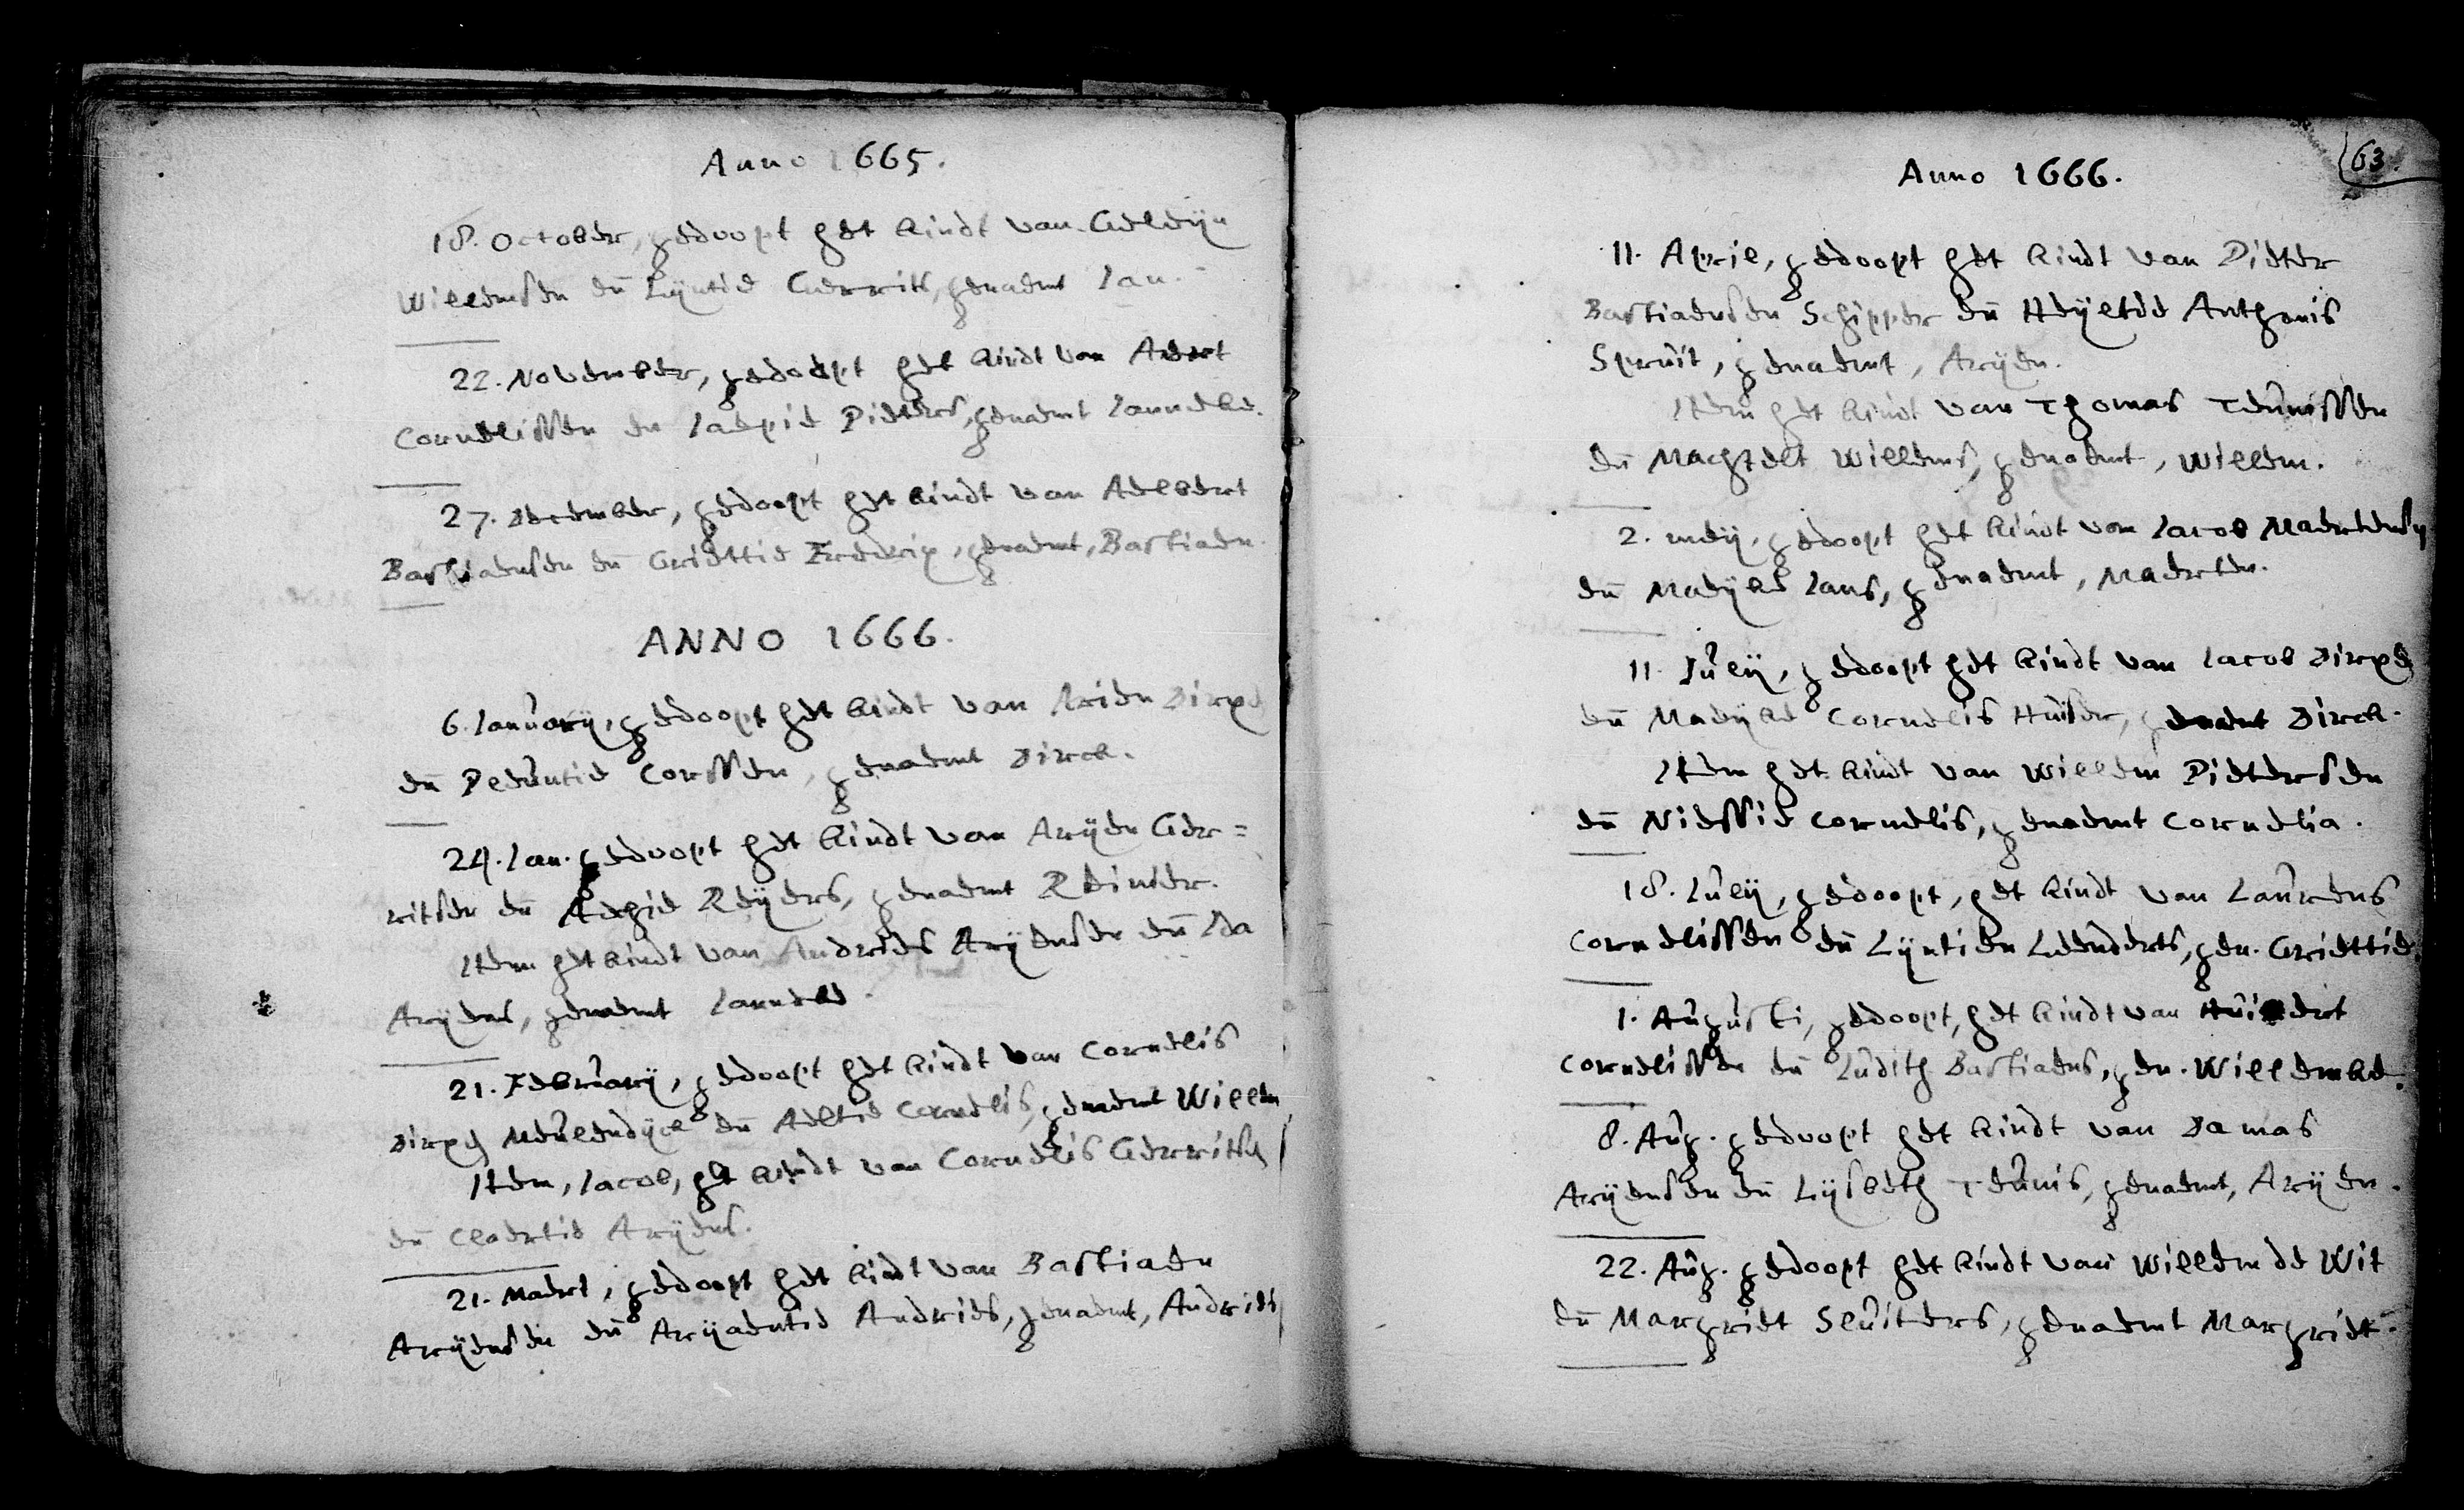 Anno 1665.
18. October, gedoopt het kindt van Geleijn
Willemsen eñ Lijntie Gerrits, genaemt Jan.
22. November, gedoopt het kindt van Aert
Cornelissen en Jaepie Pieters, genaemt Janneke.
27. December, gedoopt het kindt van Aelbert
Bastiaensen eñ Griettie Frederix, genaemt, Bastiaen.
ANNO 1666.
6. Januarij, gedoopt het kindt van Arien Dirxs
eñ Peeuntie Corssen, genaemt Dirck.
24. Jan. gedoopt het kindt van Arijen Ger=
ritsen eñ Aechie Reijers, genaemt Reinier.
Item het kindt van Andries Arijensen eñ Ida
Arijens, genaemt Janneke.
21. Februarij, gedoopt het kindt van Cornelis
Dirxs Meulendijck eñ Aeltie Cornelis, genaemt Willem
Item, Jacob, het kindt van Cornelis Gerrits
eñ Claertie Arijens.
21. Maert, gedoopt het kindt van Bastiaen
Arijensen eñ Arijaentie Andries, genaemt, Andries
63.
Anno 1666.
11. April, gedoopt het kindt van Pieter
Bastiaensen Schipper eñ Heijltie Anthonis
Spruit, genaemt, Arijen.
Item het kindt van Thomas Teunissen
eñ Machtelt Willems, genaemt, Willem.
2. meij, gedoopt het kindt van Jacob Maertens
eñ Maeijke Jans, genaemt, Maerten.
11. Julij, gedoopt het kindt van Jacob Dirxs
eñ Maeijke Cornelis Huiser, genaemt Dirck.
Item het kindt van Willem Pietersen
eñ Niessie Cornelis, genaemt Cornelia.
18. Julij, gedoopt, het kindt van Laurens
Cornelissen eñ Lijntien Leenderts, gen. Griettie.
1. Augusti, gedoopt, het kindt van Huibert
Cornelissen eñ Judith Bastiaens, gen. Willemke.
8. Aug. gedoopt het kindt van Damas
Arijensen eñ Lijsbeth Teunis, genaemt, Arijen.
22. Aug. gedoopt het kindt van Willem de Wit
eñ Margriet Sluiters, genaemt Margriet.